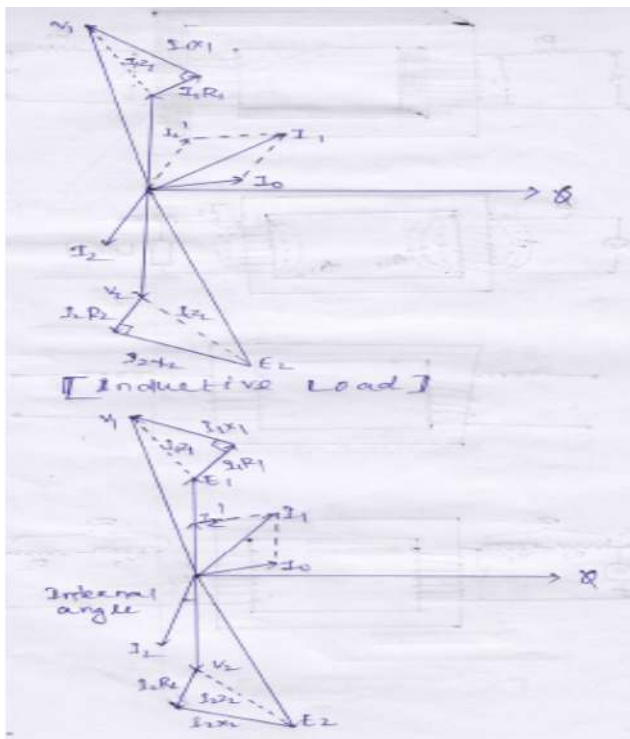 V1
I1X1
I1Z1
I1R1
I2'
I1
I0
I2
V2
I2R2
I2Z2
I2X2
E2
[Inductive Load]
V1
I1X1
I1Z1
I1R1
E1
I2'
I1
I0
Internal
angle
I2
V2
I2R2
I2Z2
I2X2
E2